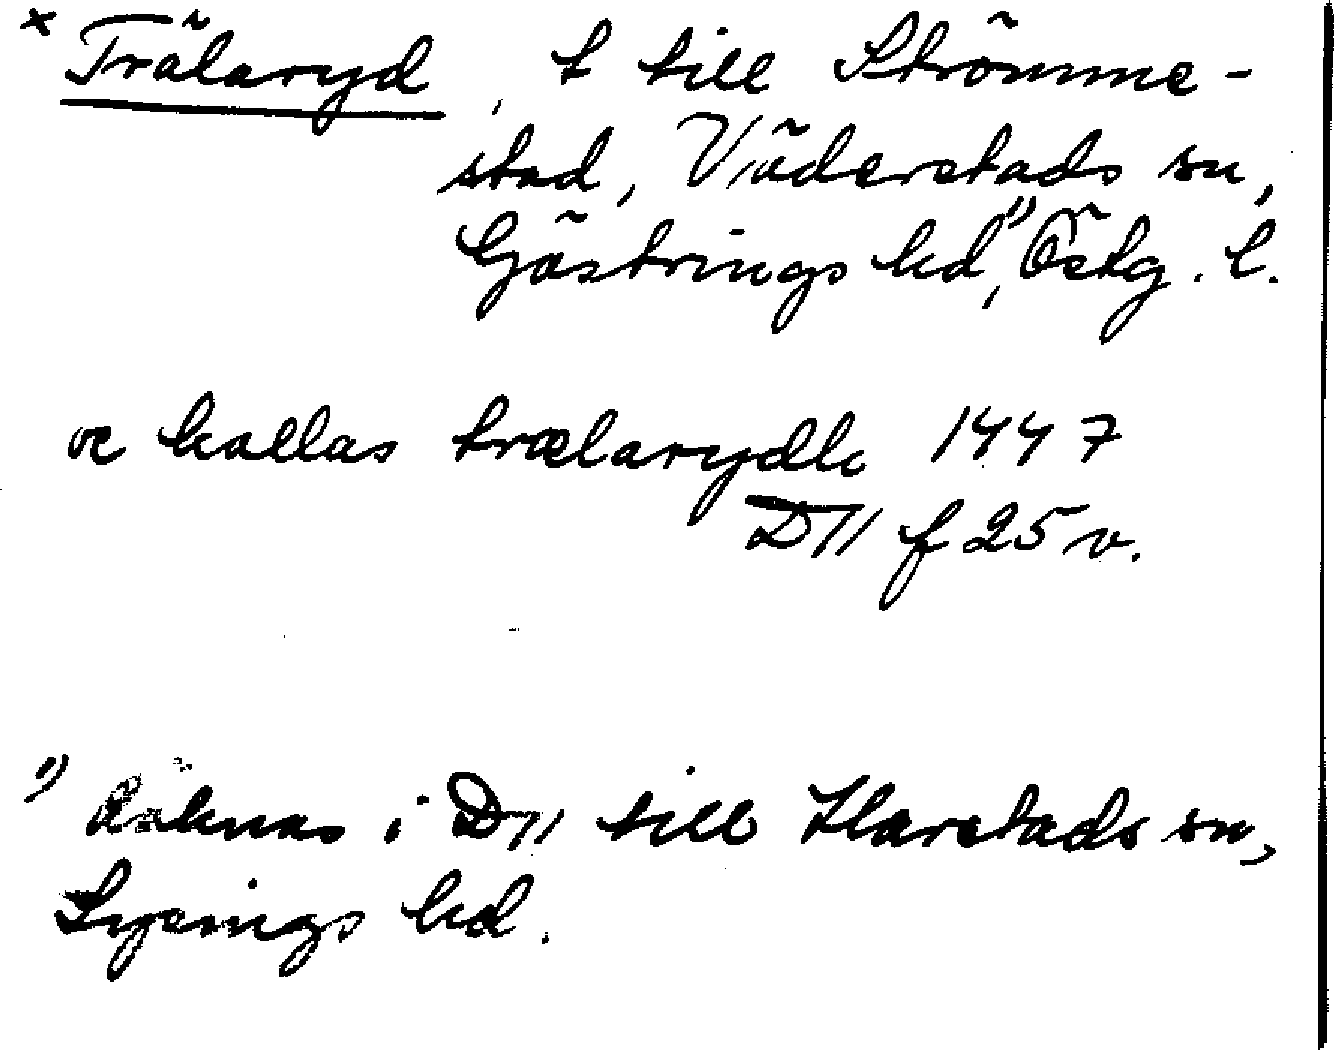 × Trälaryd, t till Strömme-
stad, Väderstads sn,
Göstrings hd,¹⁾ Östg. l.
oc kallas trælarydh 1447
D11 f 25 v.
¹⁾ Räknas i D11 till Harstads sn,
Lysings hd.